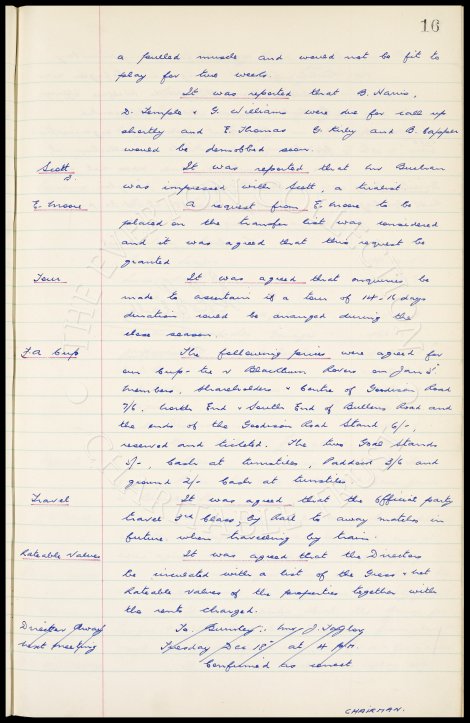 16
a pulled muscle and would not be fit to
play for two weeks.
It was reported that B. Harris,
D. Temple & G. Williams were due for call up
shortly and E. Thomas G. Kirby and B. Capper
would be demobbed soon.
Scott It was reported that Mr Buchan
was impressed with Scott, a trialist
E. Moore A request from E. Moore to be
placed on the transfer list was considered
and it was agreed that this request be
granted
Tour It was agreed that enquiries be
made to ascertain if a tour of 14-16 days
duration could be arranged during the
close season.
F.A Cup The following prices were agreed for
our Cup-tie v Blackburn Rovers on Jan 5th
members, shareholders & Centre of Goodison Road
7/6, North End & South End of Bullens Road and
the ends of the Goodison Road Stand 6/-,
reserved and ticketed. The two Goal Stands
5/-, Cash at turnstiles, Paddock 3/6 and
ground 2/- Cash at turnstiles.
Travel It was agreed that the Official party
travel 3rd Class, by Rail to away matches in
future when travelling by train.
Rateable Values It was agreed that the Directors
be circulated with a list of the Gross & net
Rateable values of the properties together with
the rents charged.
Director Away To Burnley: Mr J. Taylor
next meeting Tuesday Dec 18th at 4 P.M.
Confirmed as correct
CHAIRMAN.